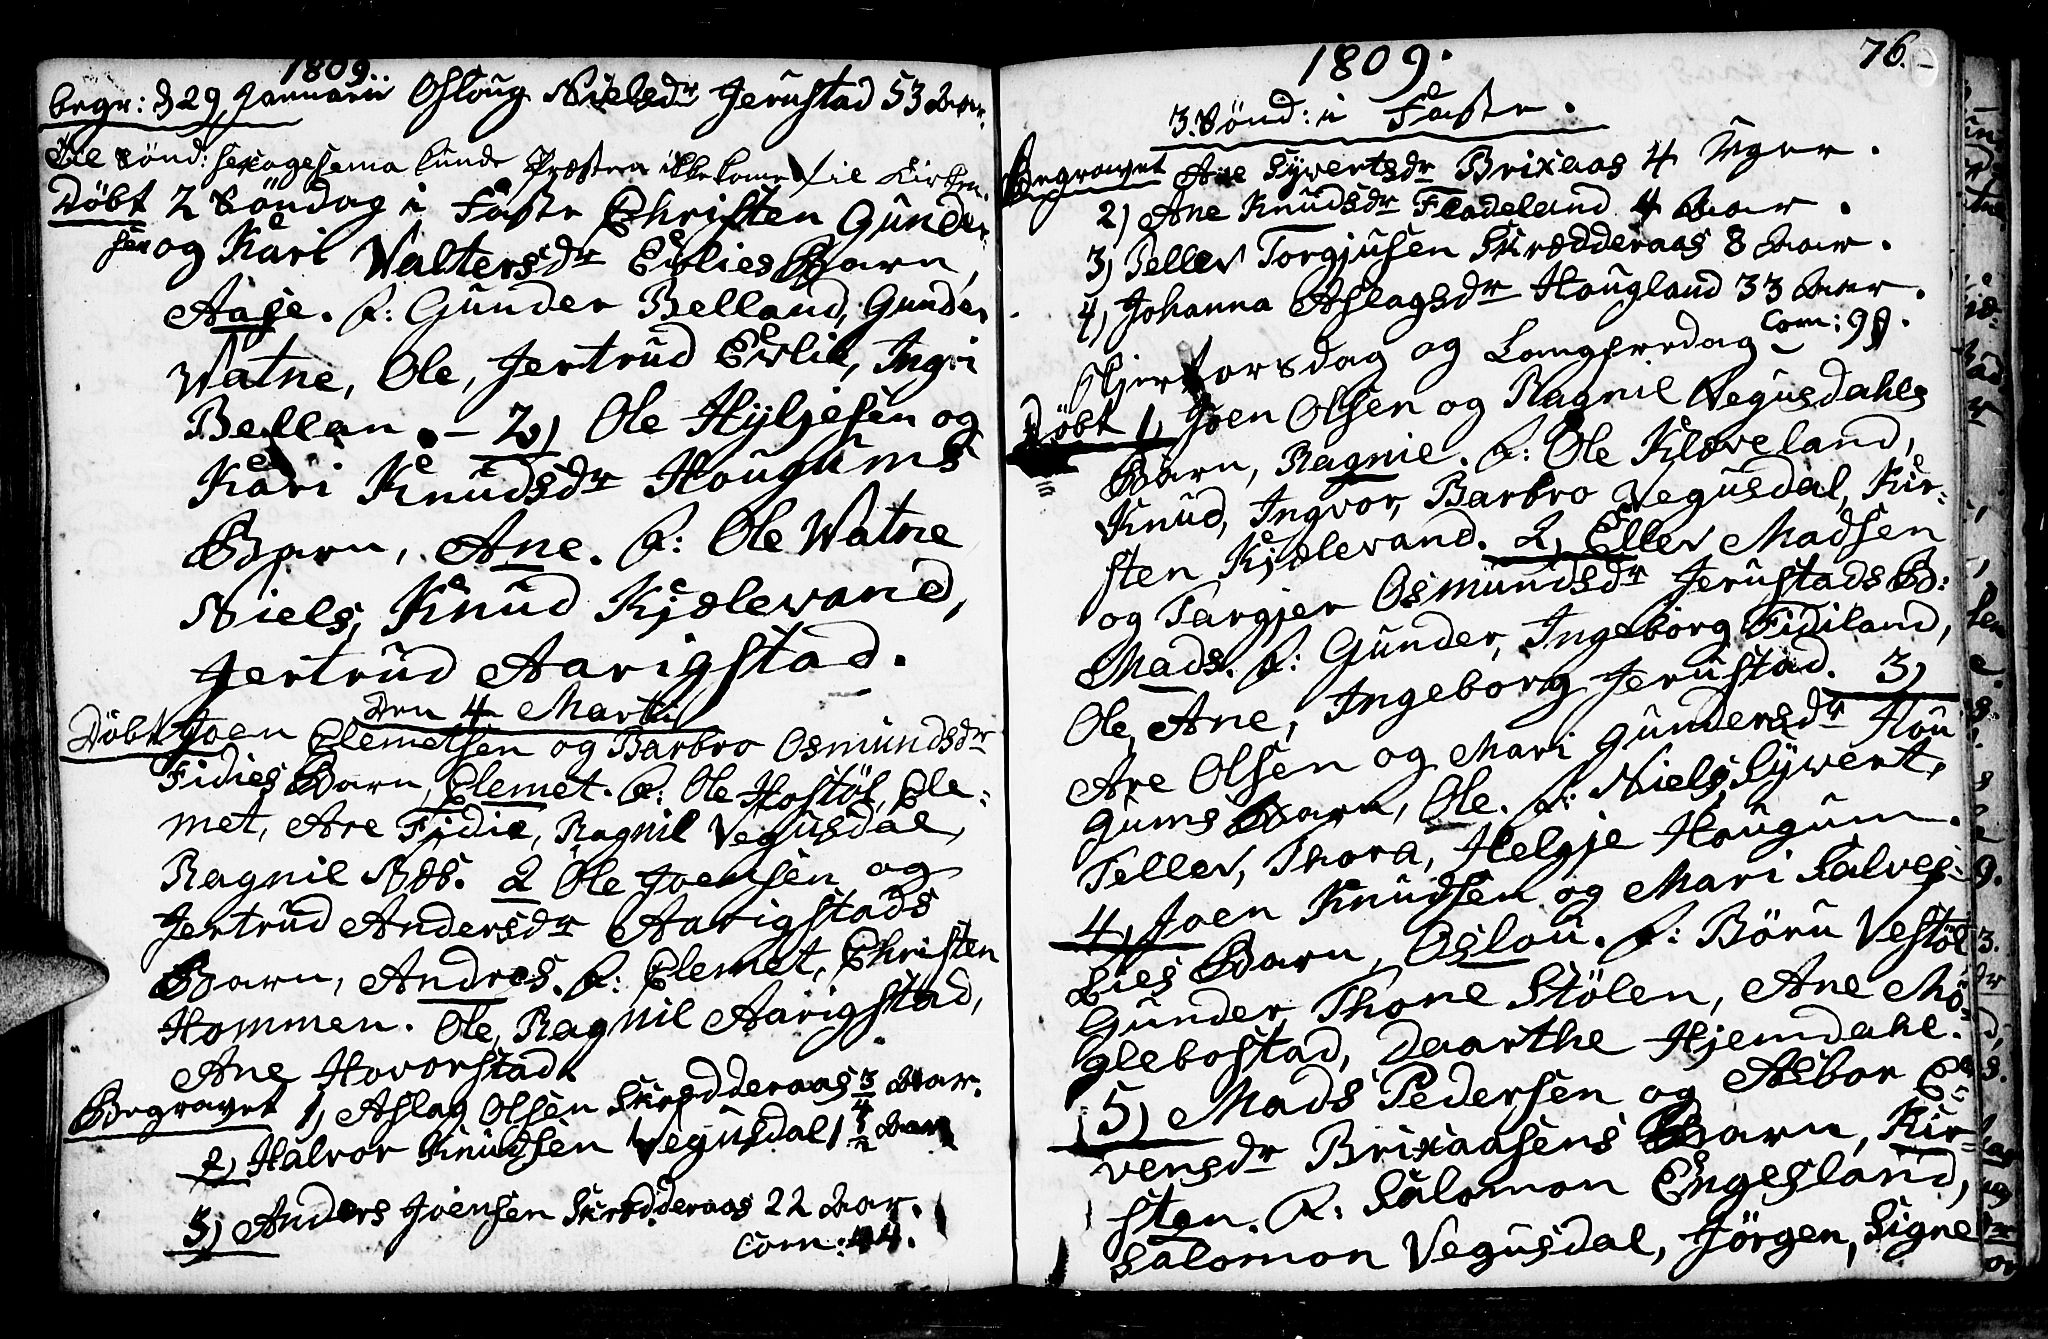 1809.
begr: d 29 Januarii Osloug Nielsdr Jerustad 53 Aar.
Til Sönd: sexagesema kunde Præsten ikke kome til Kirken
Döbt 2 Söndag i Faste Christen Gunder
sen og Kari Waltersdr Evlies Barn,
Aase. F: Gunder Belland, Gunder
Watne, Ole, Jertrud Evlie, Ingri
Bellan. – 2) Ole Hyljesen og
Kari Knudsdr Hougums
Barn, Ane. F: Ole Watne
Niels, Knud Kjælevand,
Jertrud Aarigstad.
Den 4 Martii
Döbt Joen Clemetsen og Barbro Osmundsdr
Fidies Barn, Clemet. F: Ole Hostöl, Cle=
met, Are Fidie, Ragnil Vegusdal,
Ragnil Næs. 2 Ole Joensen og
Jertrud Andersdr Aarigstads
Barn, Andres. F: Clemet, Christen
Hommen. Ole, Ragnil Aarigstad,
Ane Hovorstad.
Begravet 1) Aslag Olsen Skrædderaas 3/4 Aar.
2) Halvor Knudsen Vegusdal 1 1/2 Aar
3) Anders Joensen Skrædderaas 22 Aar.
Com: 44.
1809.
76.
3. Sönd: i Faste.
Begravet Ane Sywertsdr Brixaas 4 Uger.
2) Ane Knudsdr Fladeland 4 Aar.
3) Tellev Torgjusen Skrædderaas 8 Aar.
4) Johanna Aslagsdr Hougland 33 Aar.
Com: 99.
Skjertorsdag og Langfredag
Döbt 1) Joen Olsen og Ragnil Vegusdahls
Barn, Ragnil. F: Ole Klæveland,
Knud, Ingvor, Barbro Vegusdal, Kir=
sten Kjælevand. 2) Ellev Madsen
og Targjer Osmundsdr Jerustads B:
Mads. F: Gunder, Ingeborg Fidiland,
Ole, Ane, Ingeborg Jerustad. 3)
Are Olsen og Mari Gundersdr Hou
gums Barn, Ole. F: Niels, Sywert,
Tellev, Thora, Helgje Hougum.
4) Joen Knudsen og Mari Salves=
Lies Barn, Oslou. F: Böru Vestöl
Gunder Thone Stölen, Ane Mö=
glebostad, Daarthe Hjemdahl.
5) Mads Pedersen og Asbor E=
vensdr Brixaasens Barn, Kir=
sten. F: Salomon Engesland,
Salomon Vegusdal, Jörgen, Signe